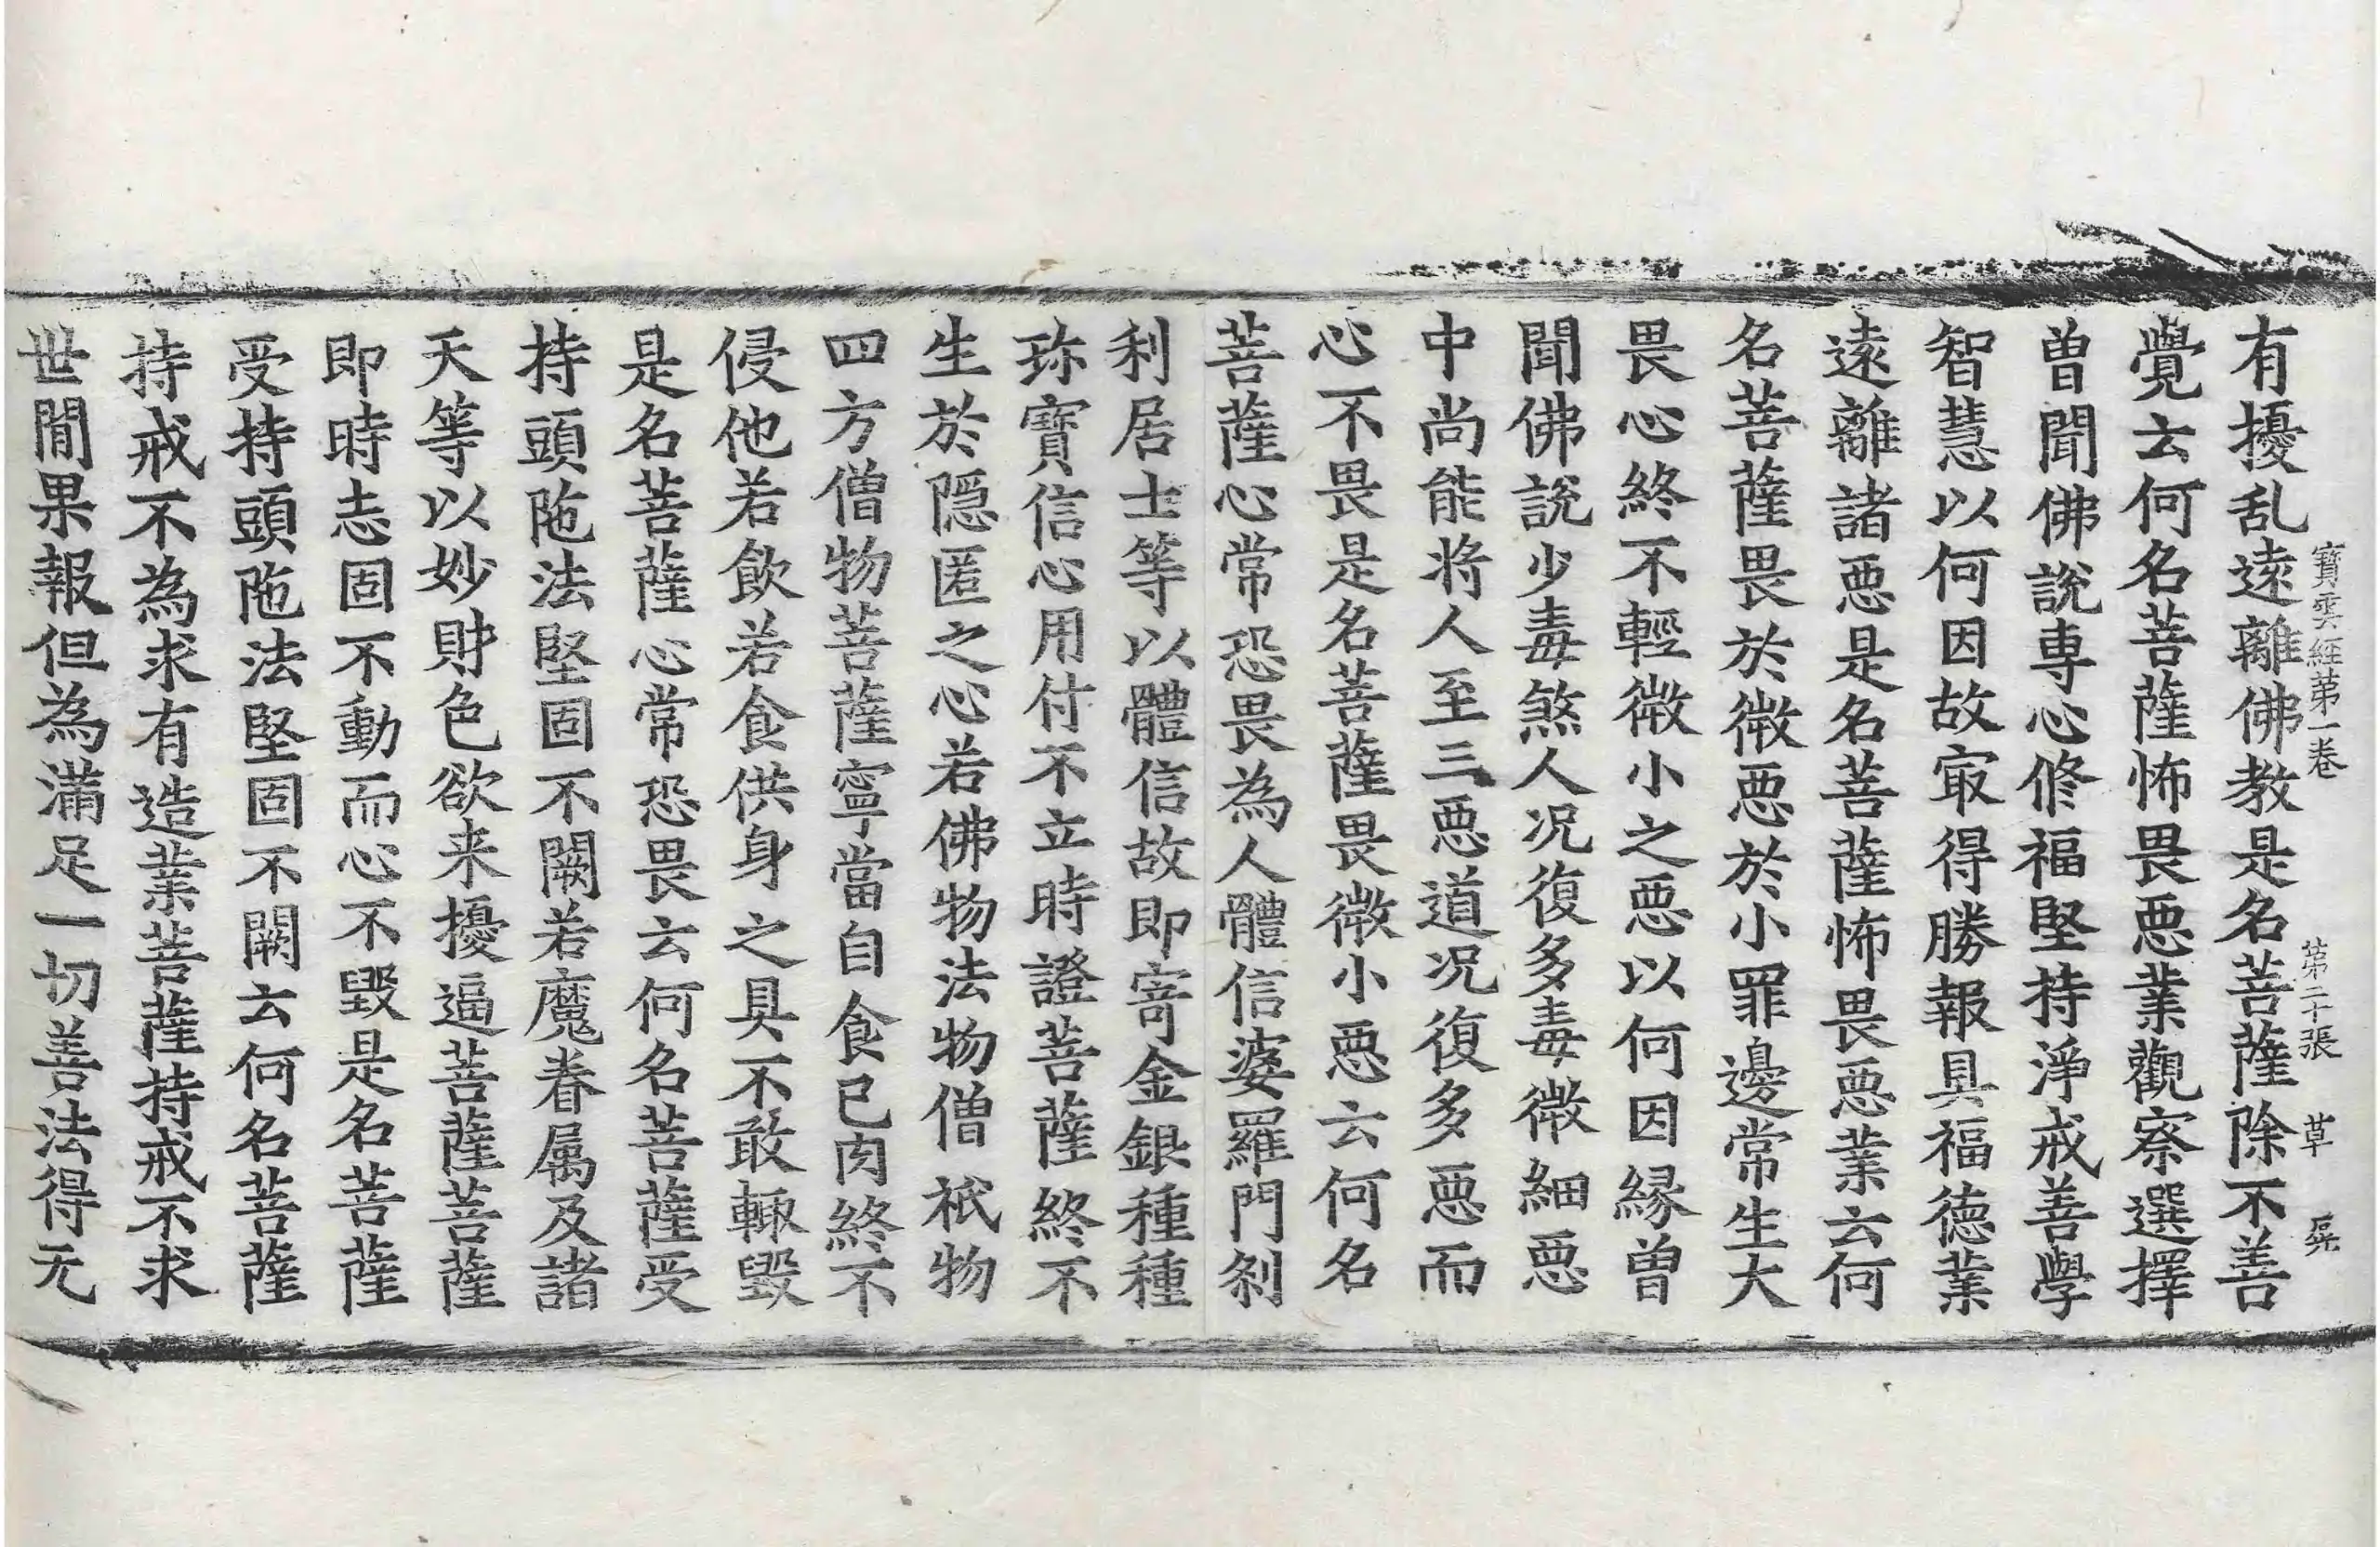 寶雲經第一卷 第二十張 草
有擾乱遠離佛教是名菩薩除不善
覺云何名菩薩怖畏悪業觀察選擇
曽聞佛說専心修福堅持淨戒善學
智慧以何因故㝡得勝報具福德業
遠離諸悪是名菩薩怖畏悪業云何
名菩薩畏於微悪於小罪邊常生大
畏心終不輕微小之悪以何因縁曽
聞佛說少毒煞人况復多毒微細悪
中尚能将人至三悪道况復多悪而
心不畏是名菩薩畏微小悪云何名
菩薩心常恐畏為人體信婆羅門刹
利居士等以體信故即寄金銀種種
珎寳信心用付不立時證菩薩終不
生於隠匿之心若佛物法物僧祇物
四方僧物菩薩寧當自食已肉終不
侵他若飲若食供身之具不敢輙毀
是名菩薩心常恐畏云何名菩薩受
持頭陁法堅固不闕若魔眷属及諸
天等以妙財色欲来擾逼菩薩菩薩
即時志固不動而心不毀是名菩薩
受持頭陁法堅固不闕云何名菩薩
持戒不為求有造業菩薩持戒不求
世間果報但為滿足一切善法得无